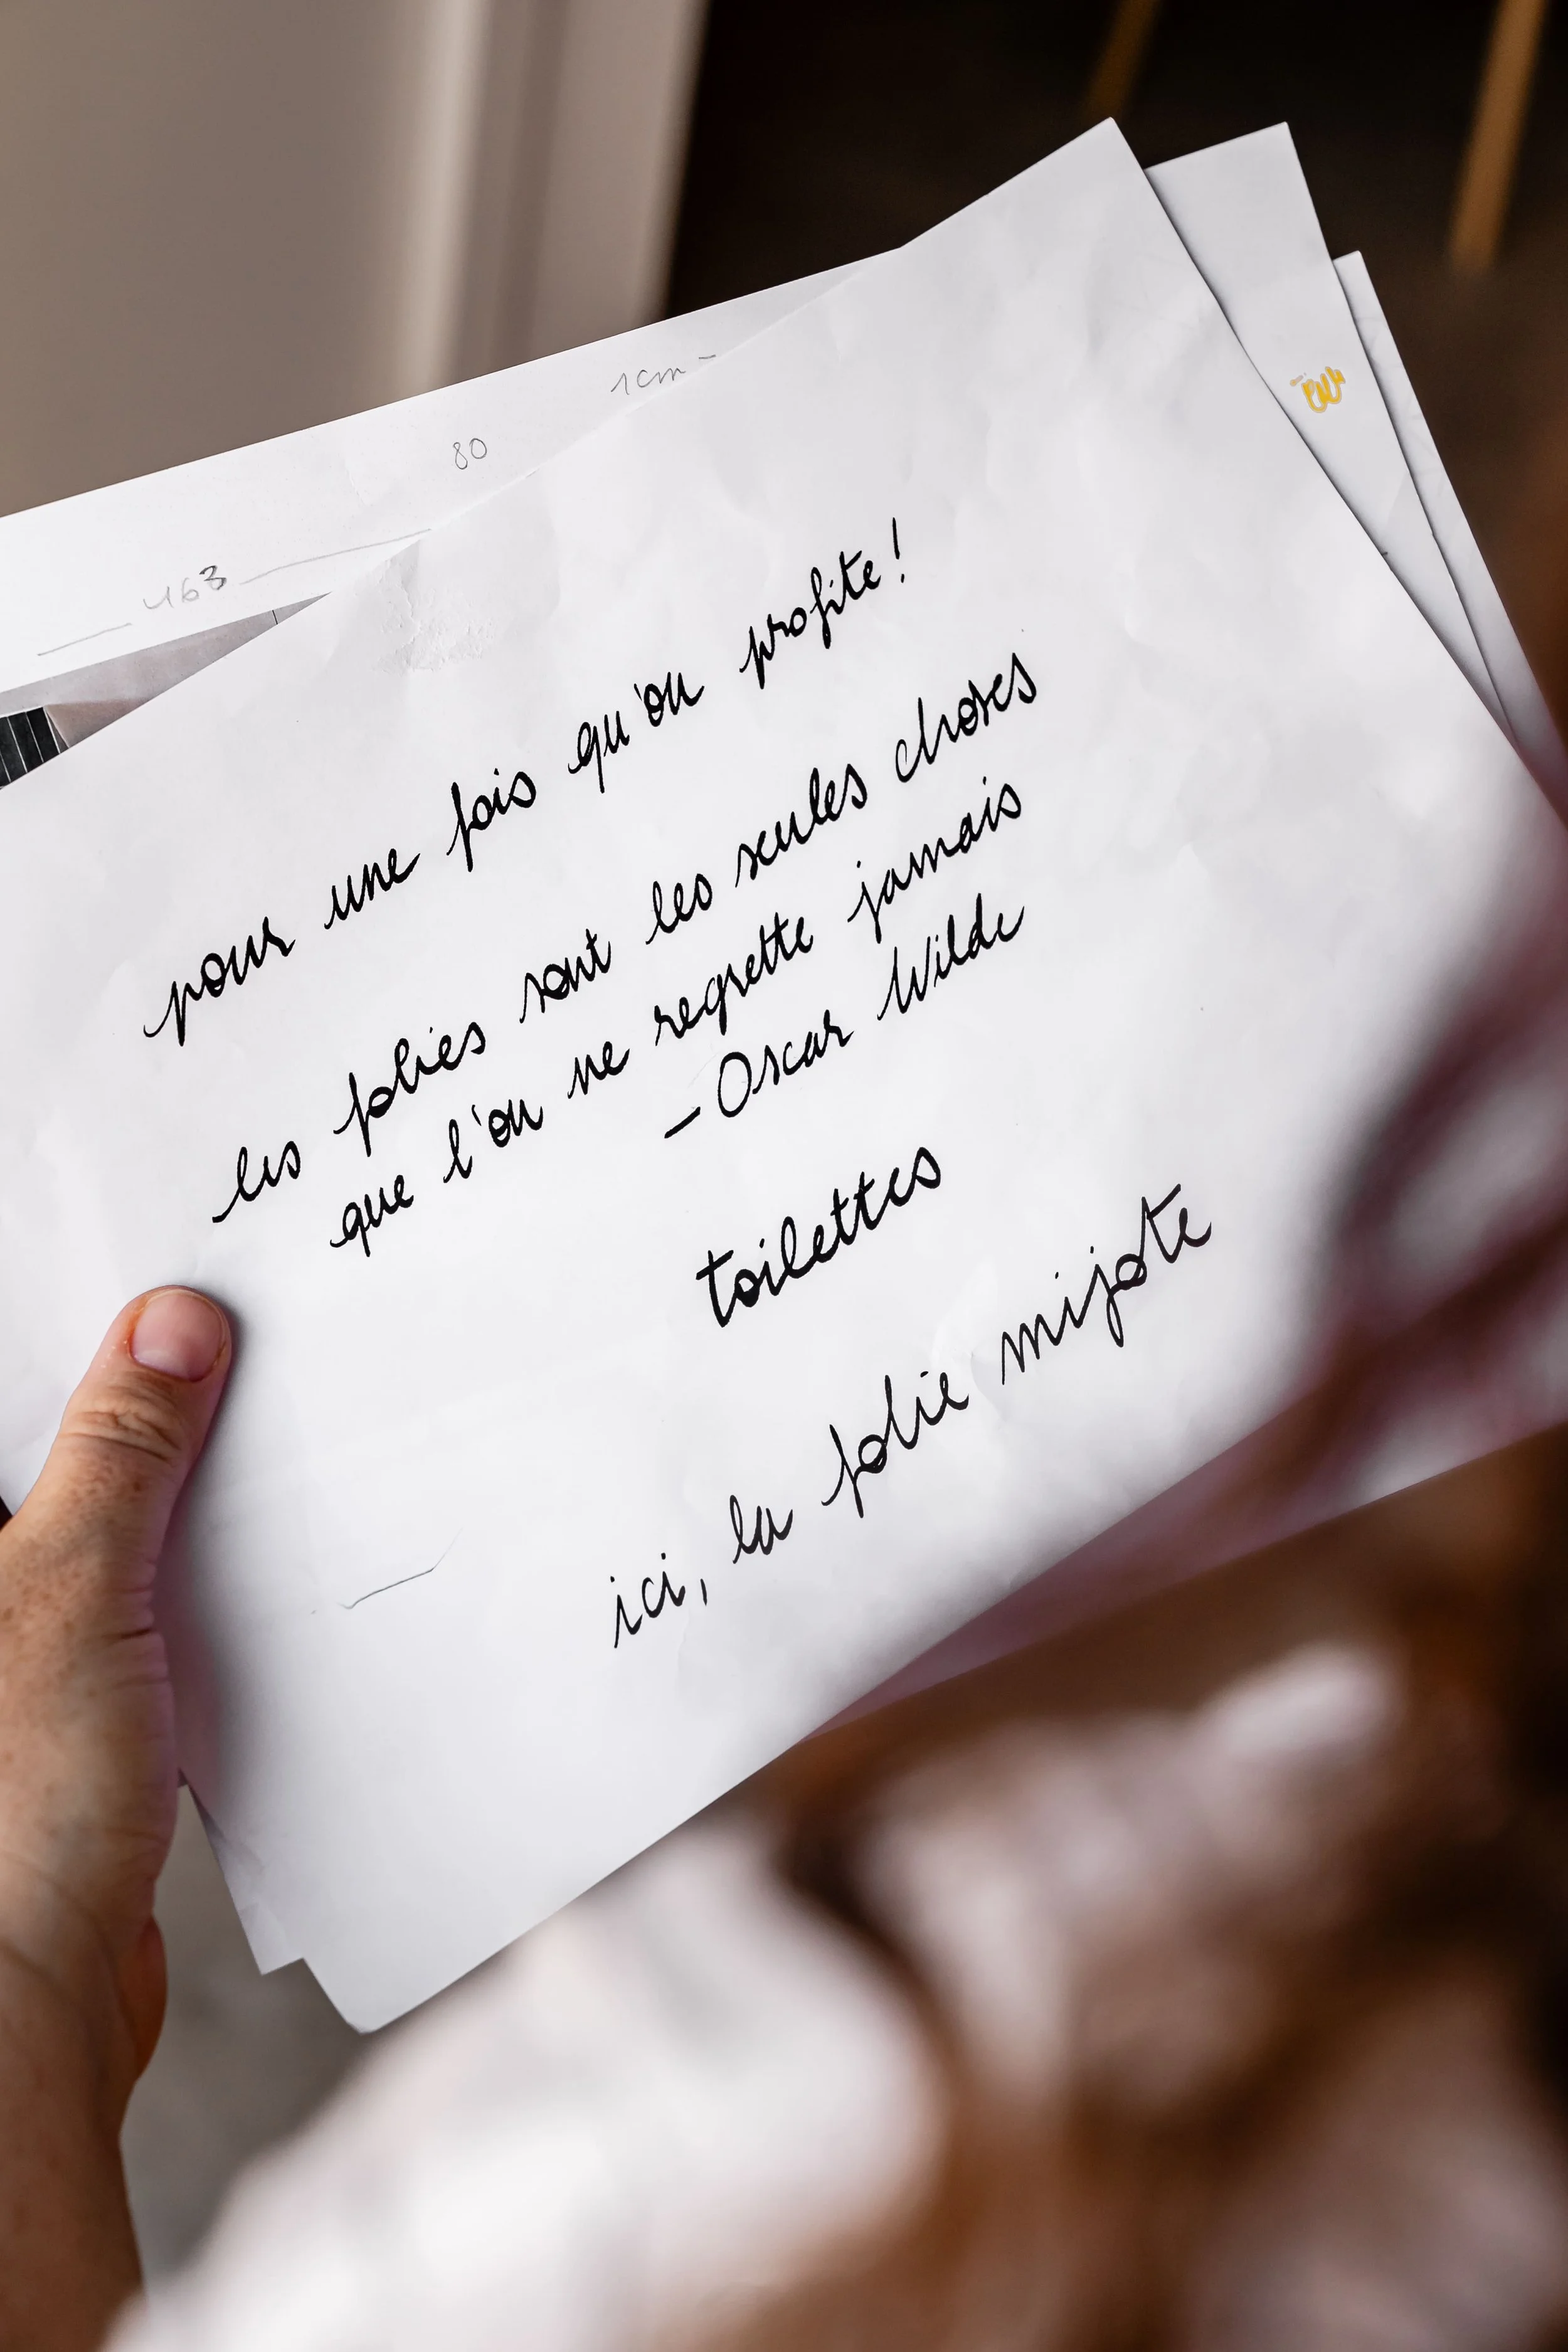 1cm
80
163
pour une fois qu'on profite!
les folies sont les seules choses
que l'on ne regrette jamais
- Oscar Wilde
toilettes
ici, la folie mijote